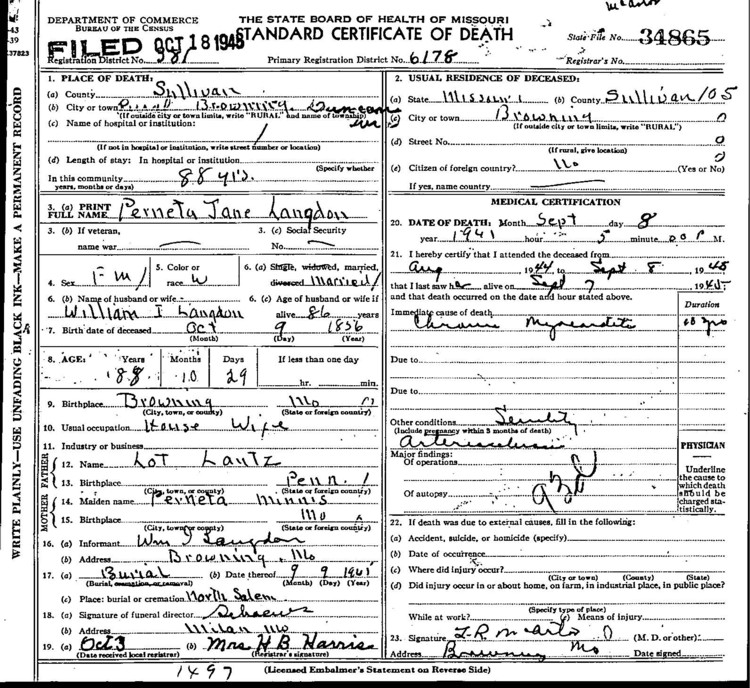 DEPARTMENT OF COMMERCE
BUREAU OF THE CENSUS
THE STATE BOARD OF HEALTH OF MISSOURI
STANDARD CERTIFICATE OF DEATH
FILED OCT 18 1945
State File No. 34865
-43
-39
37823
Registration District No.
Primary Registration District No. 6178
Registrar's No.
WRITE PLAINLY—USE UNFADING BLACK INK—MAKE A PERMANENT RECORD
1. PLACE OF DEATH:
(a) County Sullivan
(b) City or town Browning Duncan
(If outside city or town limits, write "RURAL" and name of township)
(c) Name of hospital or institution:
(If not in hospital or institution, write street number or location)
(d) Length of stay: In hospital or institution
(Specify whether
In this community 88 yrs.
years, months or days)
3. (a) PRINT FULL NAME Perneta Jane Langdon
3. (b) If veteran, name war
3. (c) Social Security No.
4. Sex Fm
5. Color or race W
6. (a) Single, widowed, married, divorced Married
6. (b) Name of husband or wife
William I Langdon
6. (c) Age of husband or wife if alive 86 years
7. Birth date of deceased Oct 9 1856
(Month) (Day) (Year)
8. AGE: Years Months Days If less than one day
88 10 29 hr. min.
9. Birthplace Browning Mo
(City, town, or county) (State or foreign country)
10. Usual occupation House Wife
11. Industry or business
FATHER
12. Name Lot Lantz
13. Birthplace Penn.
(City, town, or county) (State or foreign country)
MOTHER
14. Maiden name Perneta Minnis
15. Birthplace Mo
(City, town or county) (State or foreign country)
16. (a) Informant Wm J Langdon
(b) Address Browning, Mo
17. (a) Burial (b) Date thereof 9 9
(Burial, cremation, or removal) (Month) (Day) (Year)
(c) Place: burial or cremation North Salem
18. (a) Signature of funeral director
(b) Address Milan Mo
19. (a) Oct 3 (b) Mrs H B Harris
(Date received local registrar) (Registrar's signature)
1497
(Licensed Embalmer's Statement on Reverse Side)
2. USUAL RESIDENCE OF DECEASED:
(a) State Missouri (b) County Sullivan 105
(c) City or town Browning 0
(If outside city or town limits, write "RURAL")
(d) Street No. 0
(If rural, give location)
(e) Citizen of foreign country? No (Yes or No)
If yes, name country
MEDICAL CERTIFICATION
20. DATE OF DEATH: Month Sept day 8
year hour 5 minute M.
21. I hereby certify that I attended the deceased from
Aug 1944 to Sept 8 1945
that I last saw her alive on Sept 7 1945
and that death occurred on the date and hour stated above.
Duration
Immediate cause of death
Chronic Myocarditis
Due to
Due to
Other conditions Senility
(Include pregnancy within 3 months of death)
Arteriosclerosis
PHYSICIAN
Major findings:
Of operations
Of autopsy
Underline the cause to which death should be charged statistically.
22. If death was due to external causes, fill in the following:
(a) Accident, suicide, or homicide (specify)
(b) Date of occurrence
(c) Where did injury occur?
(City or town) (County) (State)
(d) Did injury occur in or about home, on farm, in industrial place, in public place?
(Specify type of place)
While at work? (e) Means of injury
23. Signature (M. D. or other)
Address Browning Mo Date signed